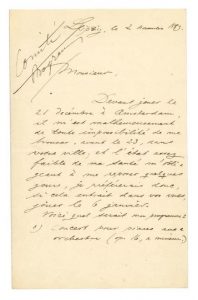 le 2 novembre
Monsieur
Devant jouer le
21 décembre à Amsterdam,
il m'est malheureusement
de toute impossibilité de me
trouver, avant le 23, dans
votre ville et l'état assez
faible de ma santé m'obli-
geant à me reposer quelques
jours, je préférerais donc,
si cela entrait dans vos vues
jouer le 6 janvier.
Voici quel serait mon programme :
1) Concert pour piano avec
orchestre (op 16, a mineur)